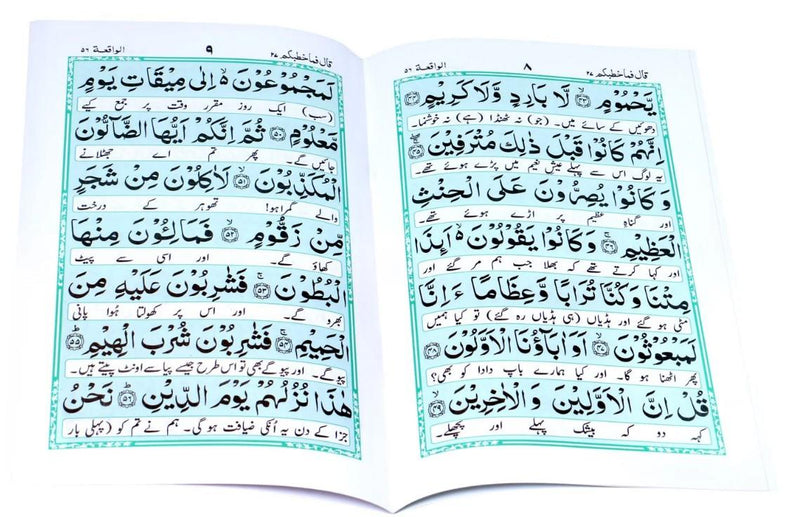 قال فماخطبكم ٢٧ ٨ الواقعة ٥٦
يَّحْمُوْمٍ ۙ‏﴿۴۳﴾ لَّا بَارِدٍ وَّلَا كَرِيْمٍ ﴿۴۴﴾
دھوئیں کے سائے میں۔ (جو) نہ ٹھنڈا (ہے) نہ خوشنما۔
اِنَّهُمْ كَانُوْا قَبْلَ ذٰلِكَ مُتْرَفِيْنَ ۚۖ‏﴿۴۵﴾
یہ لوگ اس سے پہلے عیش نعیم میں پڑے ہوئے تھے۔
وَكَانُوْا يُصِرُّوْنَ عَلَى الْحِنْثِ
اور گناہِ عظیم پر اڑے ہوئے تھے۔
الْعَظِيْمِ ۚ‏﴿۴۶﴾ وَكَانُوْا يَقُوْلُوْنَ ۙ اَئِذَا
اور کہا کرتے تھے کہ بھلا جب ہم مر گئے اور
مِتْنَا وَكُنَّا تُرَابًا وَّعِظَامًا ءَاِنَّا
مٹی ہو گئے اور ہڈیاں (ہی ہڈیاں رہ گئے) تو کیا ہمیں
لَمَبْعُوْثُوْنَ ۙ‏﴿۴۷﴾ اَوَاٰبَآؤُنَا الْاَوَّلُوْنَ ﴿۴۸﴾
پھر اٹھنا ہو گا۔ اور کیا ہمارے باپ دادا کو بھی؟
قُلْ اِنَّ الْاَوَّلِيْنَ وَالْاٰخِرِيْنَ ۙ‏﴿۴۹﴾
کہہ دو کہ بیشک پہلے اور پچھلے۔
قال فماخطبكم ٢٧ ٩ الواقعة ٥٦
لَمَجْمُوْعُوْنَ ۙ اِلٰى مِيْقَاتِ يَوْمٍ
(سب) ایک روز مقرر وقت پر جمع کیے
مَّعْلُوْمٍ ﴿۵۰﴾ ثُمَّ اِنَّكُمْ اَيُّهَا الضَّآلُّوْنَ
جائیں گے۔ پھر تم اے جھٹلانے
الْمُكَذِّبُوْنَ ۙ‏﴿۵۱﴾ لَاٰكِلُوْنَ مِنْ شَجَرٍ
والے گمراہو! تھوہر کے درخت
مِّنْ زَقُّوْمٍ ۙ‏﴿۵۲﴾ فَمَالِـُٔوْنَ مِنْهَا
کھاؤ گے۔ اور اسی سے پیٹ
الْبُطُوْنَ ۚ‏﴿۵۳﴾ فَشٰرِبُوْنَ عَلَيْهِ مِنَ
بھرو گے۔ اور اس پر کھولتا ہُوا پانی
الْحَمِيْمِ ۚ‏﴿۵۴﴾ فَشٰرِبُوْنَ شُرْبَ الْهِيْمِ ؕ‏﴿۵۵﴾
پیو گے۔ اور پیو گے بھی تو اس طرح جیسے پیاسے اونٹ پیتے ہیں۔
هٰذَا نُزُلُهُمْ يَوْمَ الدِّيْنِ ؕ‏﴿۵۶﴾ نَحْنُ
جزا کے دن یہ اُنکی ضیافت ہو گی۔ ہم نے تم کو (پہلی بار